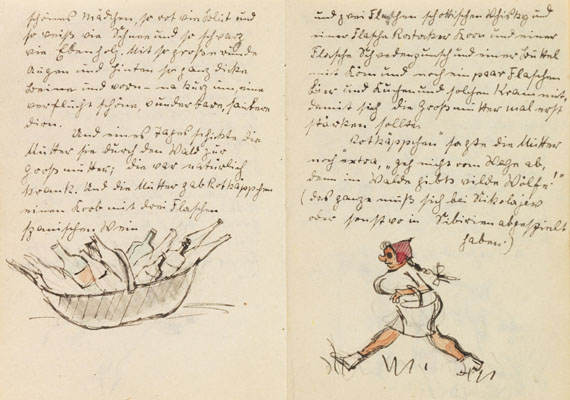 schönes Mädchen, so rot wie Blut und
so weiß wie Schnee und so schwarz
wie Ebenholz. Mit so große runde
Augen und hinten so ganz dicke
Beine und vorn – na kurz um, eine
verflucht schöne, wunderbare, saubere
Dirn.
Und eines Tages schickte die
Mutter sie durch den Wald zur
Großmutter; die war natürlich
krank. Und die Mutter gab Rotkäppchen
einen Korb mit drei Flaschen
spanischen Wein
und zwei Flaschen schottischen Whisky und
einer Flasche Rostocker Korn und einer
Flasche Schwedenpunsch und einer Buttel
mit Köm und noch ein paar Flaschen
Bier und Kuchen und solchen Kram mit,
damit sich die Großmutter mal erst
stärken sollte.
„Rotkäppchen" sagte die Mutter
noch extra, „geh nicht vom Wege ab,
denn im Walde gibts wilde Wölfe!"
(das ganze muß sich bei Nikolajew
oder sonstwo in Sibirien abgespielt
haben.)